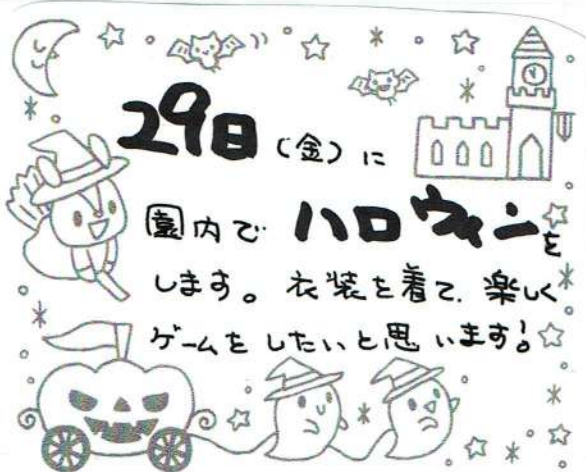 29日(金)に
園内でハロウィンを
します。衣装を着て、楽しく
ゲームをしたいと思います!